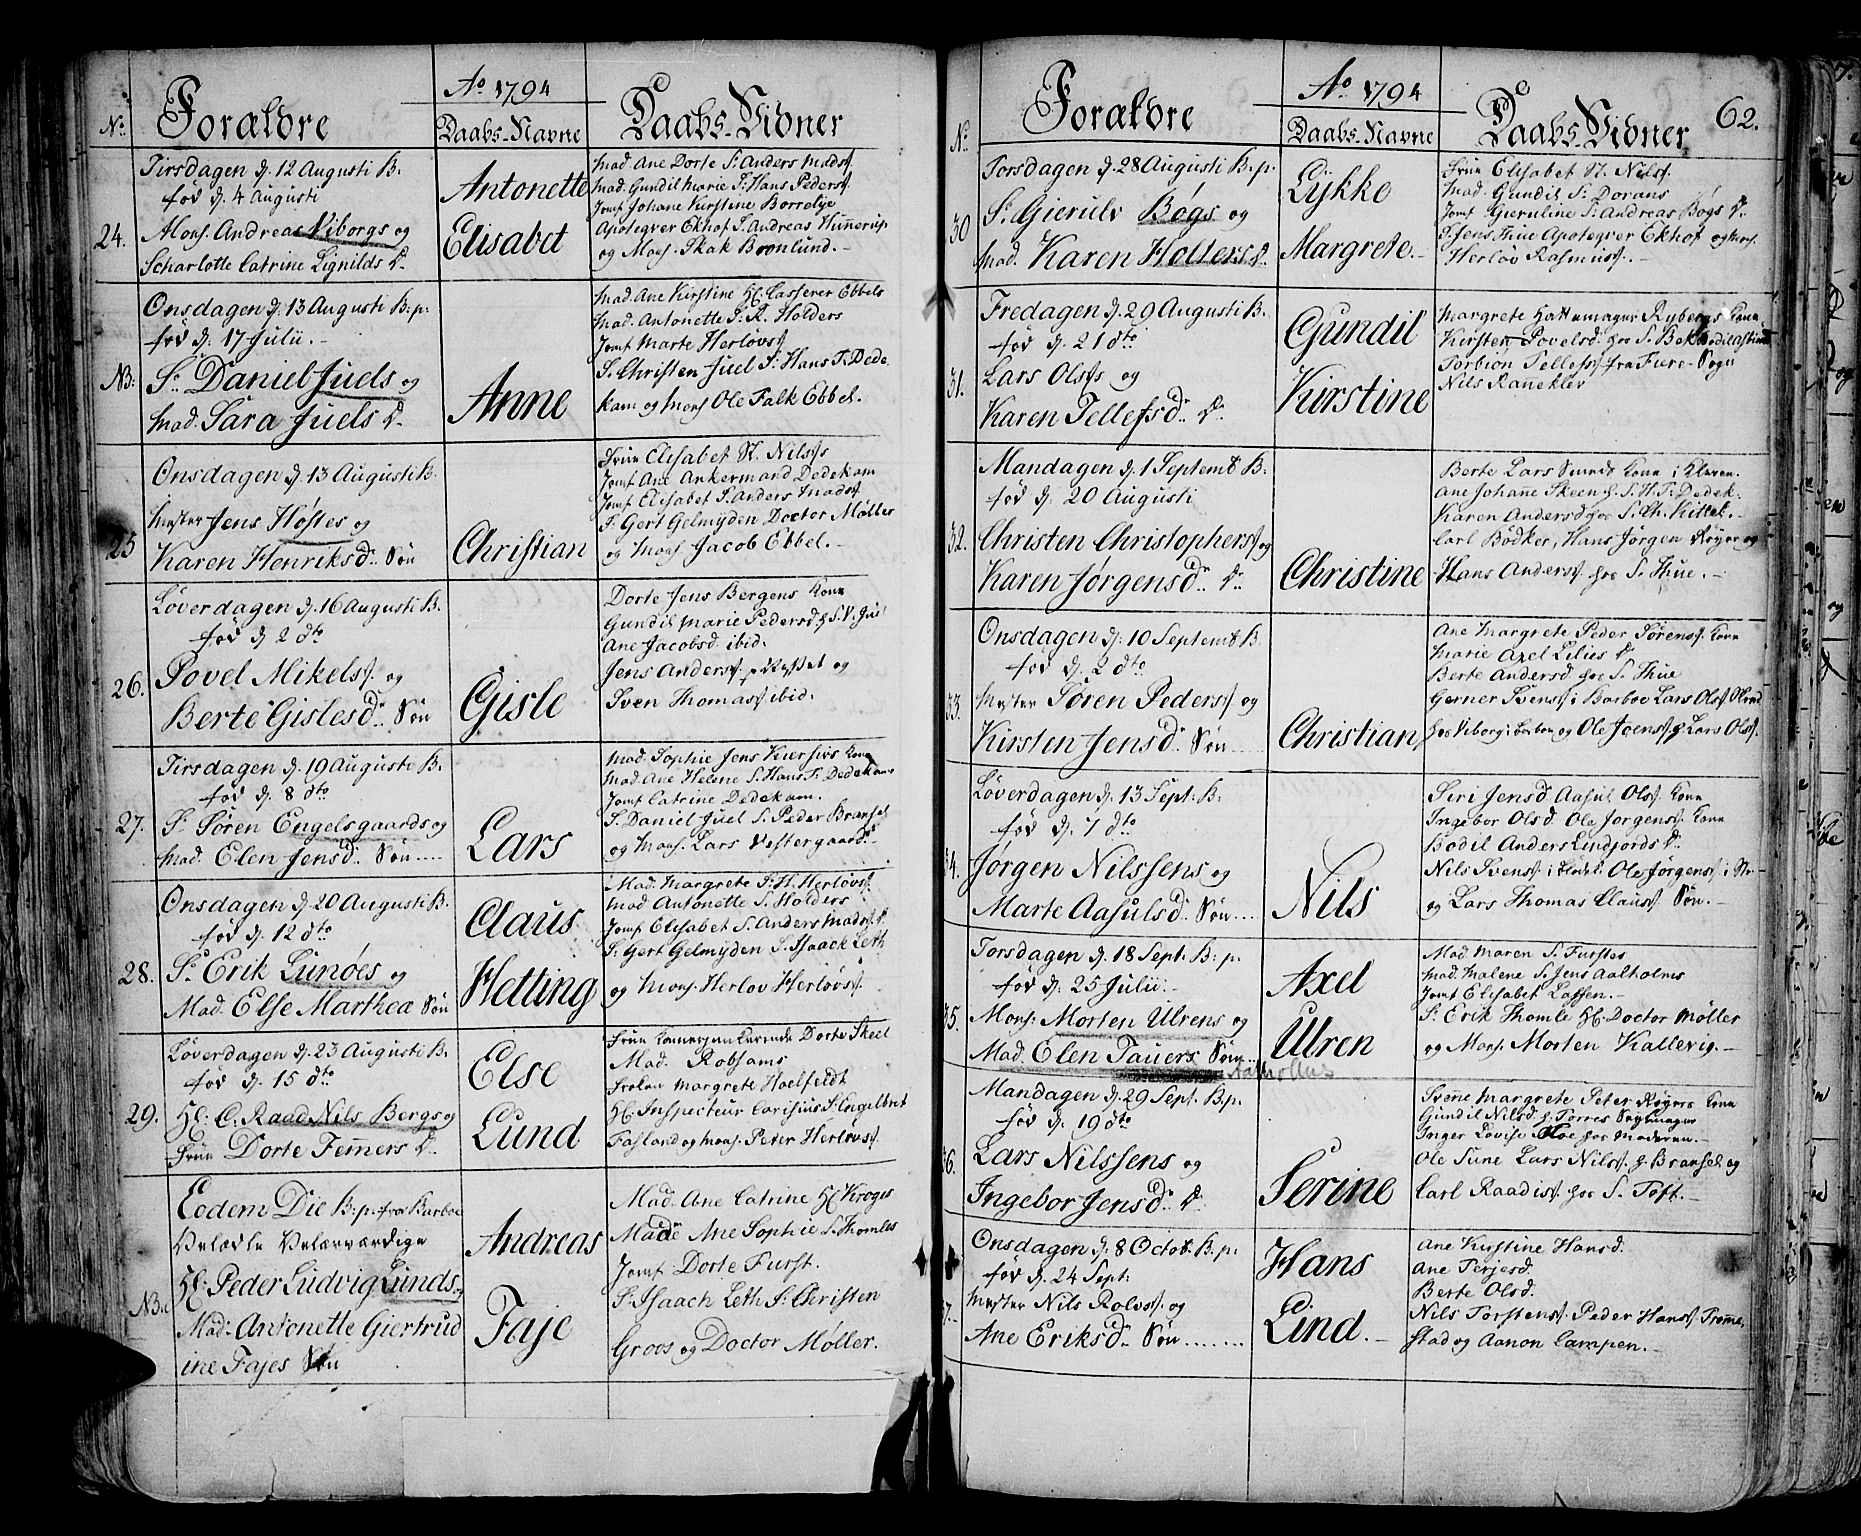 No.
Forældre
Ao 1794
Daabs-Navne
Daabs-Vidner
Tirsdagen d. 12 Augusti B.
fød d. 4 Augusti
24.
Mons. Andreas Viborgs og
Scharlotte Catrine Lignilds D.
Antonette
Elisabet
Mad Ane Dorte S. Anders Madss.
Mad. Gundil Marie S. Hans Pederss.
Jomf Johane Kirstine Borrelye
Apoteqver Ekhof S. Andreas Hunnerup
og Mons. Skak Bronlund.-
Onsdagen d. 13 Augusti B: p:
fød d. 17 Julii.-
NB:
Sr. Daniel Juels og
Mad. Sara Juels D.
Anne
Mad. Ane Kirstine H: Casserer Ebbels
Mad. Antonette S. R. Holders
Jomf Marte Herløvs
S. Christen Juel S. Hans T. Dede
kam og Mons Ole Falk Ebbel.
Onsdagen d. 13 Augusti B.
25
Mester Jens Høstes og
Karen Henriksdr. Søn
Christian
Frue Elisabet St. Nilss
Jomf Ane Ankermand Dedekam
Jomf Elisabet S. Anders Madss
S. Gert Gelmyden Doctor Møller
og Mons Jacob Ebbel.-
Løverdagen d. 16 Augusti B.
fød d. 2 dto
26.
Povel Mikelss. og
Berte Gislesdr. Søn
Gisle
Dorte Jens Bergens Kone
Gundil Marie Pedersd. h S. V. Jus
Ane Jacobsd ibid.
Jens Anderss og
Sven Thomass ibid.
Tirsdagen d. 19 Augusti B.
fød d. 8 dto
27.
Sr. Søren Engelsgaards og
Mad. Elen Jensdr. Søn....
Lars
Mad. Sophie Jens Kone
Mad. Ane Helene S. Hans T. Dedekams
Jomf Catrine Dedekam.
S. Daniel Juel S. Peder
og Mons. Lars Vestergaard.-
Onsdagen d. 20 Augusti B.
fød d. 12 dto
28.
Sr. Erik Lunøes og
Mad. Else Marthea Søn
Claus
Hetting
Mad. Margrete S. H. Herløvs
Mad Antonette S. Holders
Jomf Elisabet S. Anders Madss. D.
S. Gert Gelmyden S. Isaack Leth
og Mons. Herlov Herløvss.
Løverdagen d. 23 Augusti B.
fød d. 15 dto
29.
H: C. Raad Nils Bergs og
Frue Dorte Femers D.
Else
Lund
Frue Dorte Skeel
Mad. Robsams
Frøken Margrete Hoelfeldt
H: Inspecteur Carisius S. Engelbret
Fasland og Mons. Peter Herløvs.
Eodem Die B: p. fra Barboe
Velædle Velærværdige
NB:
H: Peder Ludvig Lunds og
Mad: Antonette Giertrud
ine Fajes Søn
Andreas
Faje
Mad. Ane Catrine H: Kroges
Made Ane Sophie S. Thomles
Jomf Dorte Furst.
S. Isaach Leth S. Christen
Groos og Doctor Møller.
No.
Forældre
Ao 1794
Daabs-Navne
Daabs-Vidner
62.
Torsdagen d. 28 Augusti B. p.
30
Sr. Gierulv Bøgs og
Mad. Karen Holters D.
Lykke
Margrete.-
Frue Elisabet St. Nils
Mad. Gundil S. Dorans
Jomf Gieruline S. Andreas Bøgs D.
S. Jens Thue Apoteqver Ekhof og Mons.
Herlov Rasmus.-
Fredagen d. 29 Augusti B.
fød d. 21 dto
31.
Lars Olss og
Karen Tellefsdr. D.
Gundil
Kirstine
Margrete Hattemager Rybergs Kone
Kirsten Povelsd. hos S. Bek
Torbiøn Tellefss fra Fiere-Sogn
Nils Raneklev
Mandagen d. 1 Septembr B.
fød d. 20 Augusti
32.
Christen Christopherss og
Karen Jørgensdr. D.
Christine
Berte Lars Smeds Kone i Kleven.
Ane Johane Skeen h. S. H. T. Dedek.
Karen Andersd hos S. Ch. Kittel.-
Carl Bødker, Hans Jørgen Røyer og
Hans Anderss. hos S. Thue.-
Onsdagen d. 10 Septembr B
fød d. 2 dto
33.
Mester Søren Pederss og
Kirsten Jensdr. Søn
Christian
Ane Margrete Peder Sørenss. Kone
Marie Axel Lilies D
Berte Andersd hos S. Thue
Gerner Svenss i Barboe Lars Olss
hos Viborg i Barboe og Ole Joenss. h. Lars Olss.
Løverdagen d. 13 Sept. B.
fød d. 7 dto
34.
Jørgen Nilssens og
Marte Aasulsdr. Søn....
Nils
Siri Jensd Aasul Olss. Kone
Ingebor Olsd Ole Jørgenss. Kone
Bodil Anders Lindfjords D.
Nils Svenss. i Ole Jørgenss i
og Lars Thomas Clauss. Søn.-
Torsdagen d. 18 Sept. B. p.
fød d. 25 Julii.
35.
Mons: Morten Ulrens og
Mad. Elen Tauers Søn..
Axel
Ulren
Mad Maren S. Furstes
Mad. Malene S. Jens Aalholms
Jomf Elisabet Lassen.-
Sr. Erik Thomle H: Doctor Møller
og Mons. Morten Kallevig.-
Mandagen d. 29 Sept. B. p.
fød d. 19 dto
36.
Lars Nilssens og
Ingebor Jensdr. D.
Serine
Svene Margrete Peter Røyers Kone
Gundil Nilsd. h. Torres Seylmager
Inger Lovise hos Moderen.-
Ole Sune Lars Nilss. h. og
Carl Raadis hos S. Toft.-
Onsdagen d. 8 Octobr. B. p.
fød d. 24 Sept:
37.
Mester Nils Rolvss. og
Ane Eriksdr. Søn.......
Hans
Lind.-
Ane Kirstine Hansd.
Ane Terjesd.
Berte Olsd.
Nils Torstenss. Peder Hanss. Trome,
stad og Aanon Campen.-